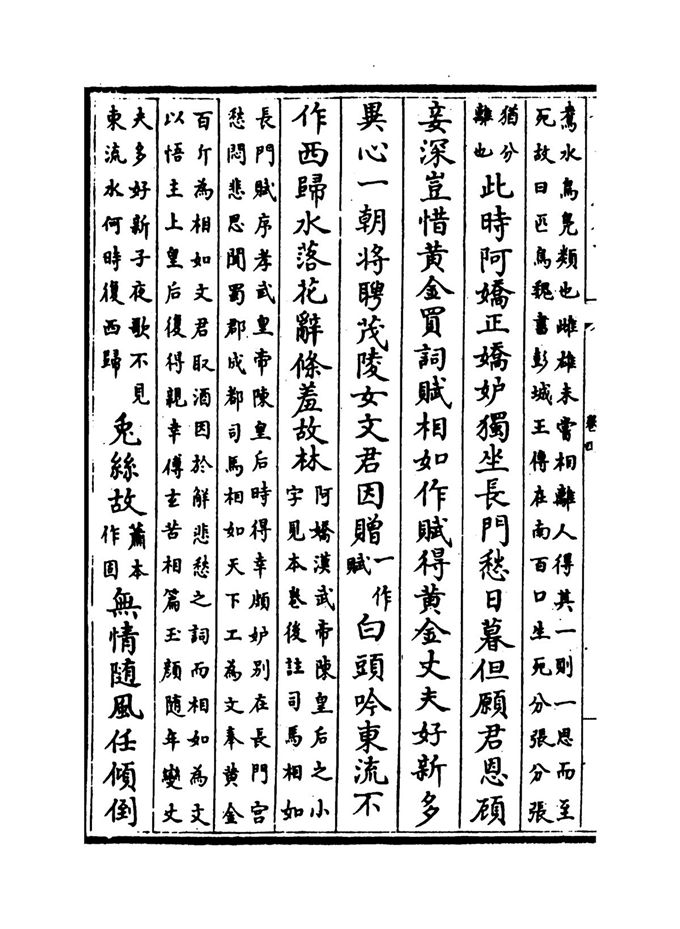 鴦水鳥鳬類也雌雄未嘗相離人得其一則一思而至
死故曰匹鳥魏書彭城王傳在南百口生死分張分張
猶分
離也
此時阿嬌正嬌妒獨坐長門愁日暮但願君恩顧
妾深豈惜黄金買詞賦相如作賦得黄金丈夫好新多
異心一朝將聘茂陵女文君因贈
一作
賦
白頭吟東流不
作西歸水落花辭條羞故林
阿嬌漢武帝陳皇后之小
字見本卷後註司馬相如
長門賦序孝武皇帝陳皇后時得幸頗妒别在長門宫
愁悶悲思聞蜀郡成都司馬相如天下工為文奉黄金
百斤為相如文君取酒因於解悲愁之詞而相如為文
以悟主上皇后復得親幸傅玄苦相篇玉顔隨年變丈
夫多好新子夜歌不見
東流水何時復西歸
兎絲故
蕭本
作固
無情隨風任傾倒
卷四